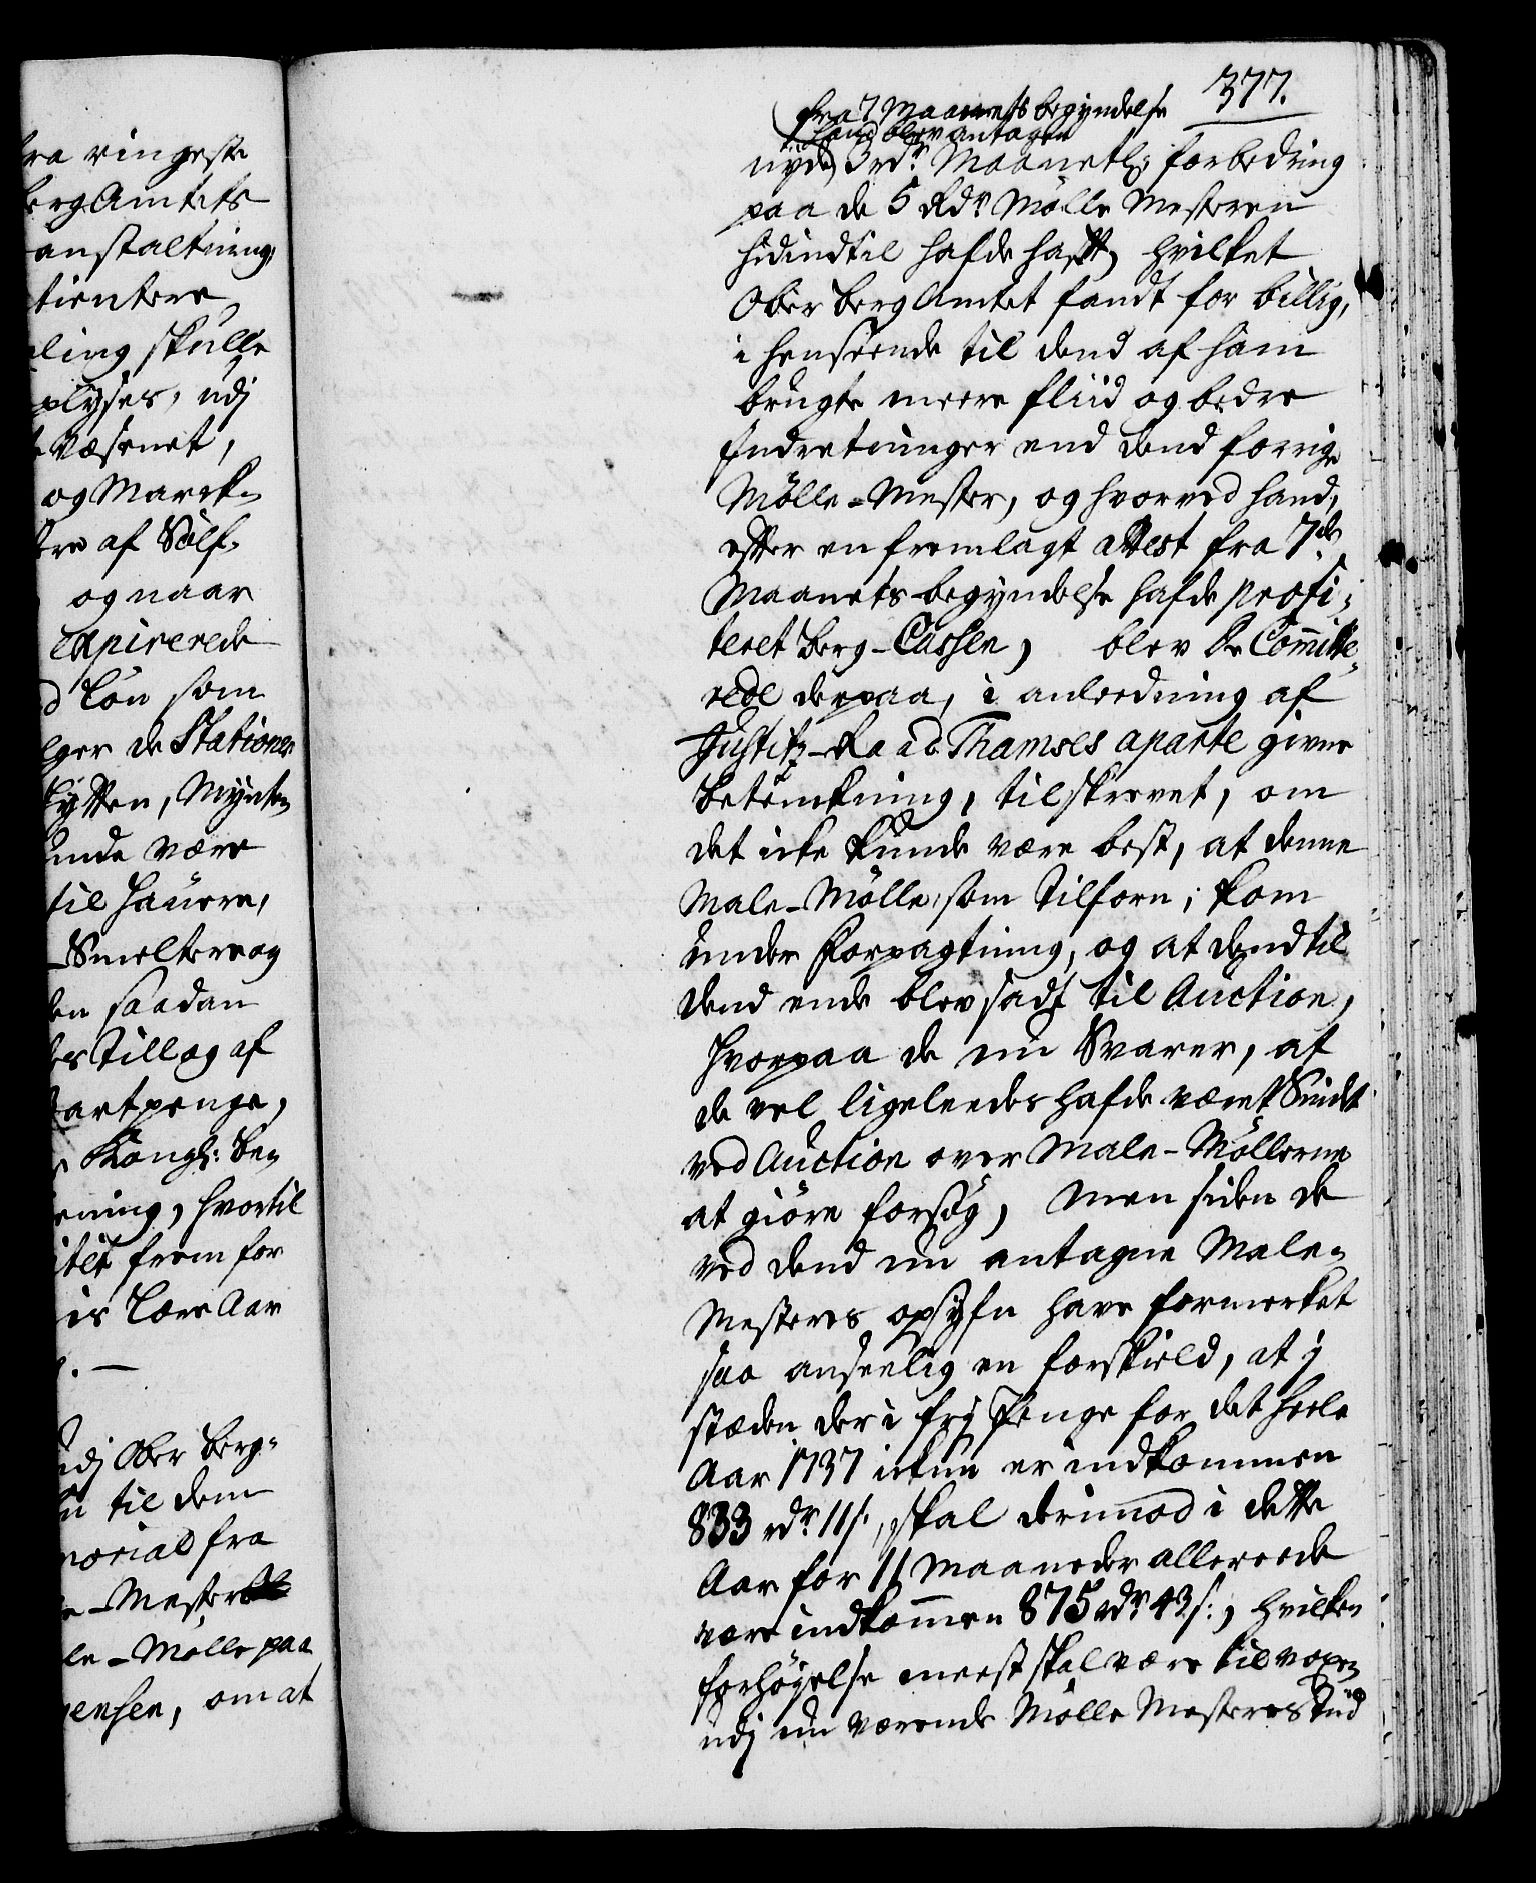 ra ringeste
bergAmtets
anstaltning,
tientere
ling skulle
plyses, udj
Væsenet,
og Marck-
ere af Sølf-
og naar
expirerede
d Løn som
lger de Stationer
Hytten, Mynten
unde være
til Hauere,
Smeltere og
en saadan
es Tillæg af
artpenge,
Kongl: Be-
ening, hvortil
itet frem for
is Lære Aar
. —
udj Ober Berg-
til dem
morial fra
e-Mester
le-Mølle paa
ensen, om at
377.
fra 7 Maanets begyndelse
hand blev antagen
nyde 3 rdr. Maanetl: forbedring
paa de 5 Rdr Mølle Mesteren
hidindtil hafde hafft, hvilket
Ober BergAmtet fandt for billig,
i henseende til dend af ham
brugte meere fliid og bedre
Indretninger end dend forrige
Mølle-Mester, og hvorved hand,
efter en fremlagt attest fra 7de
Maanets begyndelse hafde profi-
teret Berg-Cassen, blev De Committe-
rede derpaa, i anleedning af
Justitz-Raad Thamses aparte givne
Betænkning, tilskrevet, om
det icke kunde være best, at denne
Male-Mølle, som tilforn, kom
under Forpagtning, og at dend til
dend ende blev sadt til Auction,
Hvorpaa de nu Svarer, at
de vel ligeleedes hafde været Sindet
ved Auction over Male-Møllerne
at giøre forsøg, Men siden de
ved dend nu antagne Male-
Mesteres opsyn have formerket
saa anseelig en forskield, at j
stæden der i frj Penge for det heele
Aar 1737 ickun er indkommen
833 rdr 11 s:, skal derimod i dette
Aar for 11 Maaneder allereede
være indkommen 875 rdr 43 s:, hvilken
forhøyelse meest skal være tilvoxen
udj nu værende Mølle Mesteres Tiid